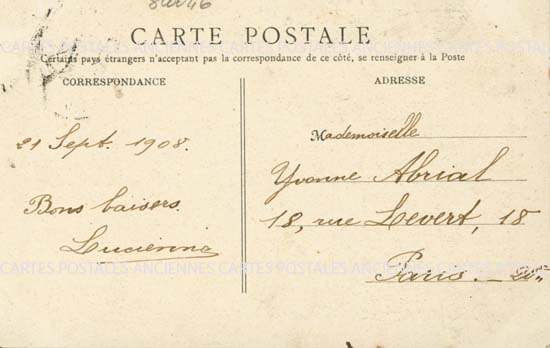 CARTE POSTALE
Certains pays étrangers n'acceptent pas la correspondance de ce côté, se renseigner à la Poste
CORRESPONDANCE
21 Sept. 1908.
Bons baisers.
Lucienne
ADRESSE
Mademoiselle
Yvonne Abrial
18, rue Levert, 18
Paris. —
CARTES POSTALES ANCIENNES CARTES POSTALES ANCIENNES
CARTES POSTALES ANCIENNES CARTES POSTALES ANCIENNES